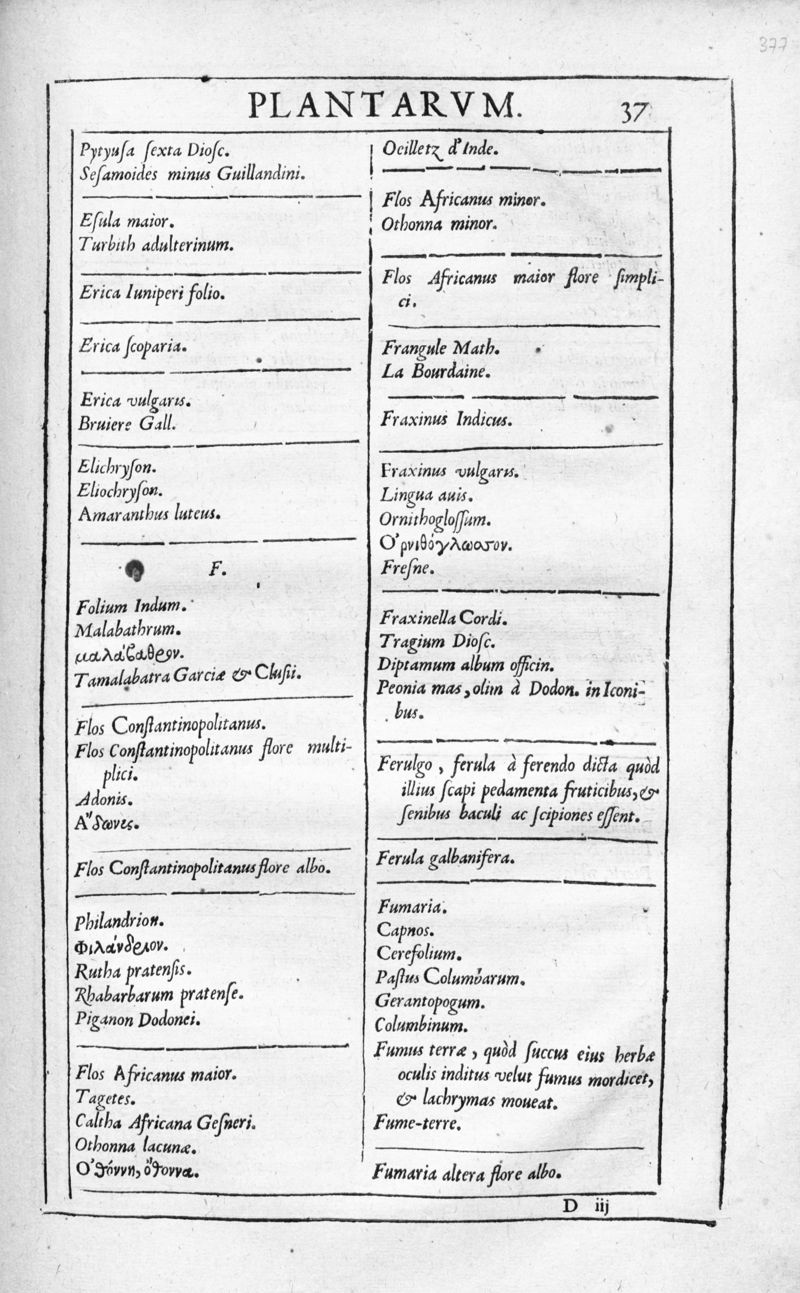 377
PLANTARVM.
37
Pytyusa ſexta Dioſc.
Seſamoides minus Guillandini.
Eſula maior.
Turbith adulterinum.
Erica Iuniperi folio.
Erica ſcoparia.
Erica vulgaris.
Bruiere Gall.
Elichryſon.
Eliochryſon.
Amaranthus luteus.
F.
Folium Indum.
Malabathrum.
μαλάβαθρον.
Tamalabatra Garciæ & Cluſii.
Flos Conſtantinopolitanus.
Flos Conſtantinopolitanus flore multi-
plici.
Adonis.
Α῎δωνες.
Flos Conſtantinopolitanus flore albo.
Philandrion.
Φιλάνδριον.
Rutha pratenſis.
Rhabarbarum pratenſe.
Piganon Dodonei.
Flos Africanus maior.
Tagetes.
Caltha Africana Geſneri.
Othonna lacunæ.
Ο᾿θόννη, ὄθοννα.
Oeilletz d'Inde.
Flos Africanus minor.
Othonna minor.
Flos Africanus maior flore ſimpli-
ci.
Frangule Math.
La Bourdaine.
Fraxinus Indicus.
Fraxinus vulgaris.
Lingua auis.
Ornithogloſſum.
Ο᾿ρνιθόγλωασον.
Freſne.
Fraxinella Cordi.
Tragium Dioſc.
Diptamum album officin.
Peonia mas, olim à Dodon. in Iconi-
bus.
Ferulgo, ferula à ferendo dicta quòd
illius ſcapi pedamenta fruticibus, &
ſenibus baculi ac ſcipiones eſſent.
Ferula galbanifera.
Fumaria.
Capnos.
Cerefolium.
Paſtus Columbarum.
Gerantopogum.
Columbinum.
Fumus terræ, quòd ſuccus eius herbæ
oculis inditus velut fumus mordicet,
& lachrymas moueat.
Fume-terre.
Fumaria altera flore albo.
D iij